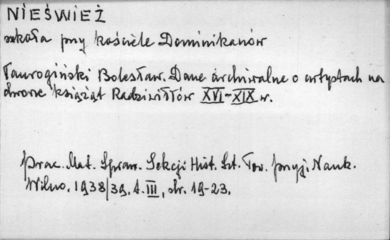 NIEŚWIEŻ
szkoła przy kościele Dominikanów
Taurogiński Bolesław. Dane archiwalne o artystach na
dworze książąt Radziwiłłów XVI-XIX w.
Prac. Mat. Spraw. Sekcji Hist. Szt. Tow. Przyj. Nauk.
Wilno, 1938/39, t. III, str. 19-23.